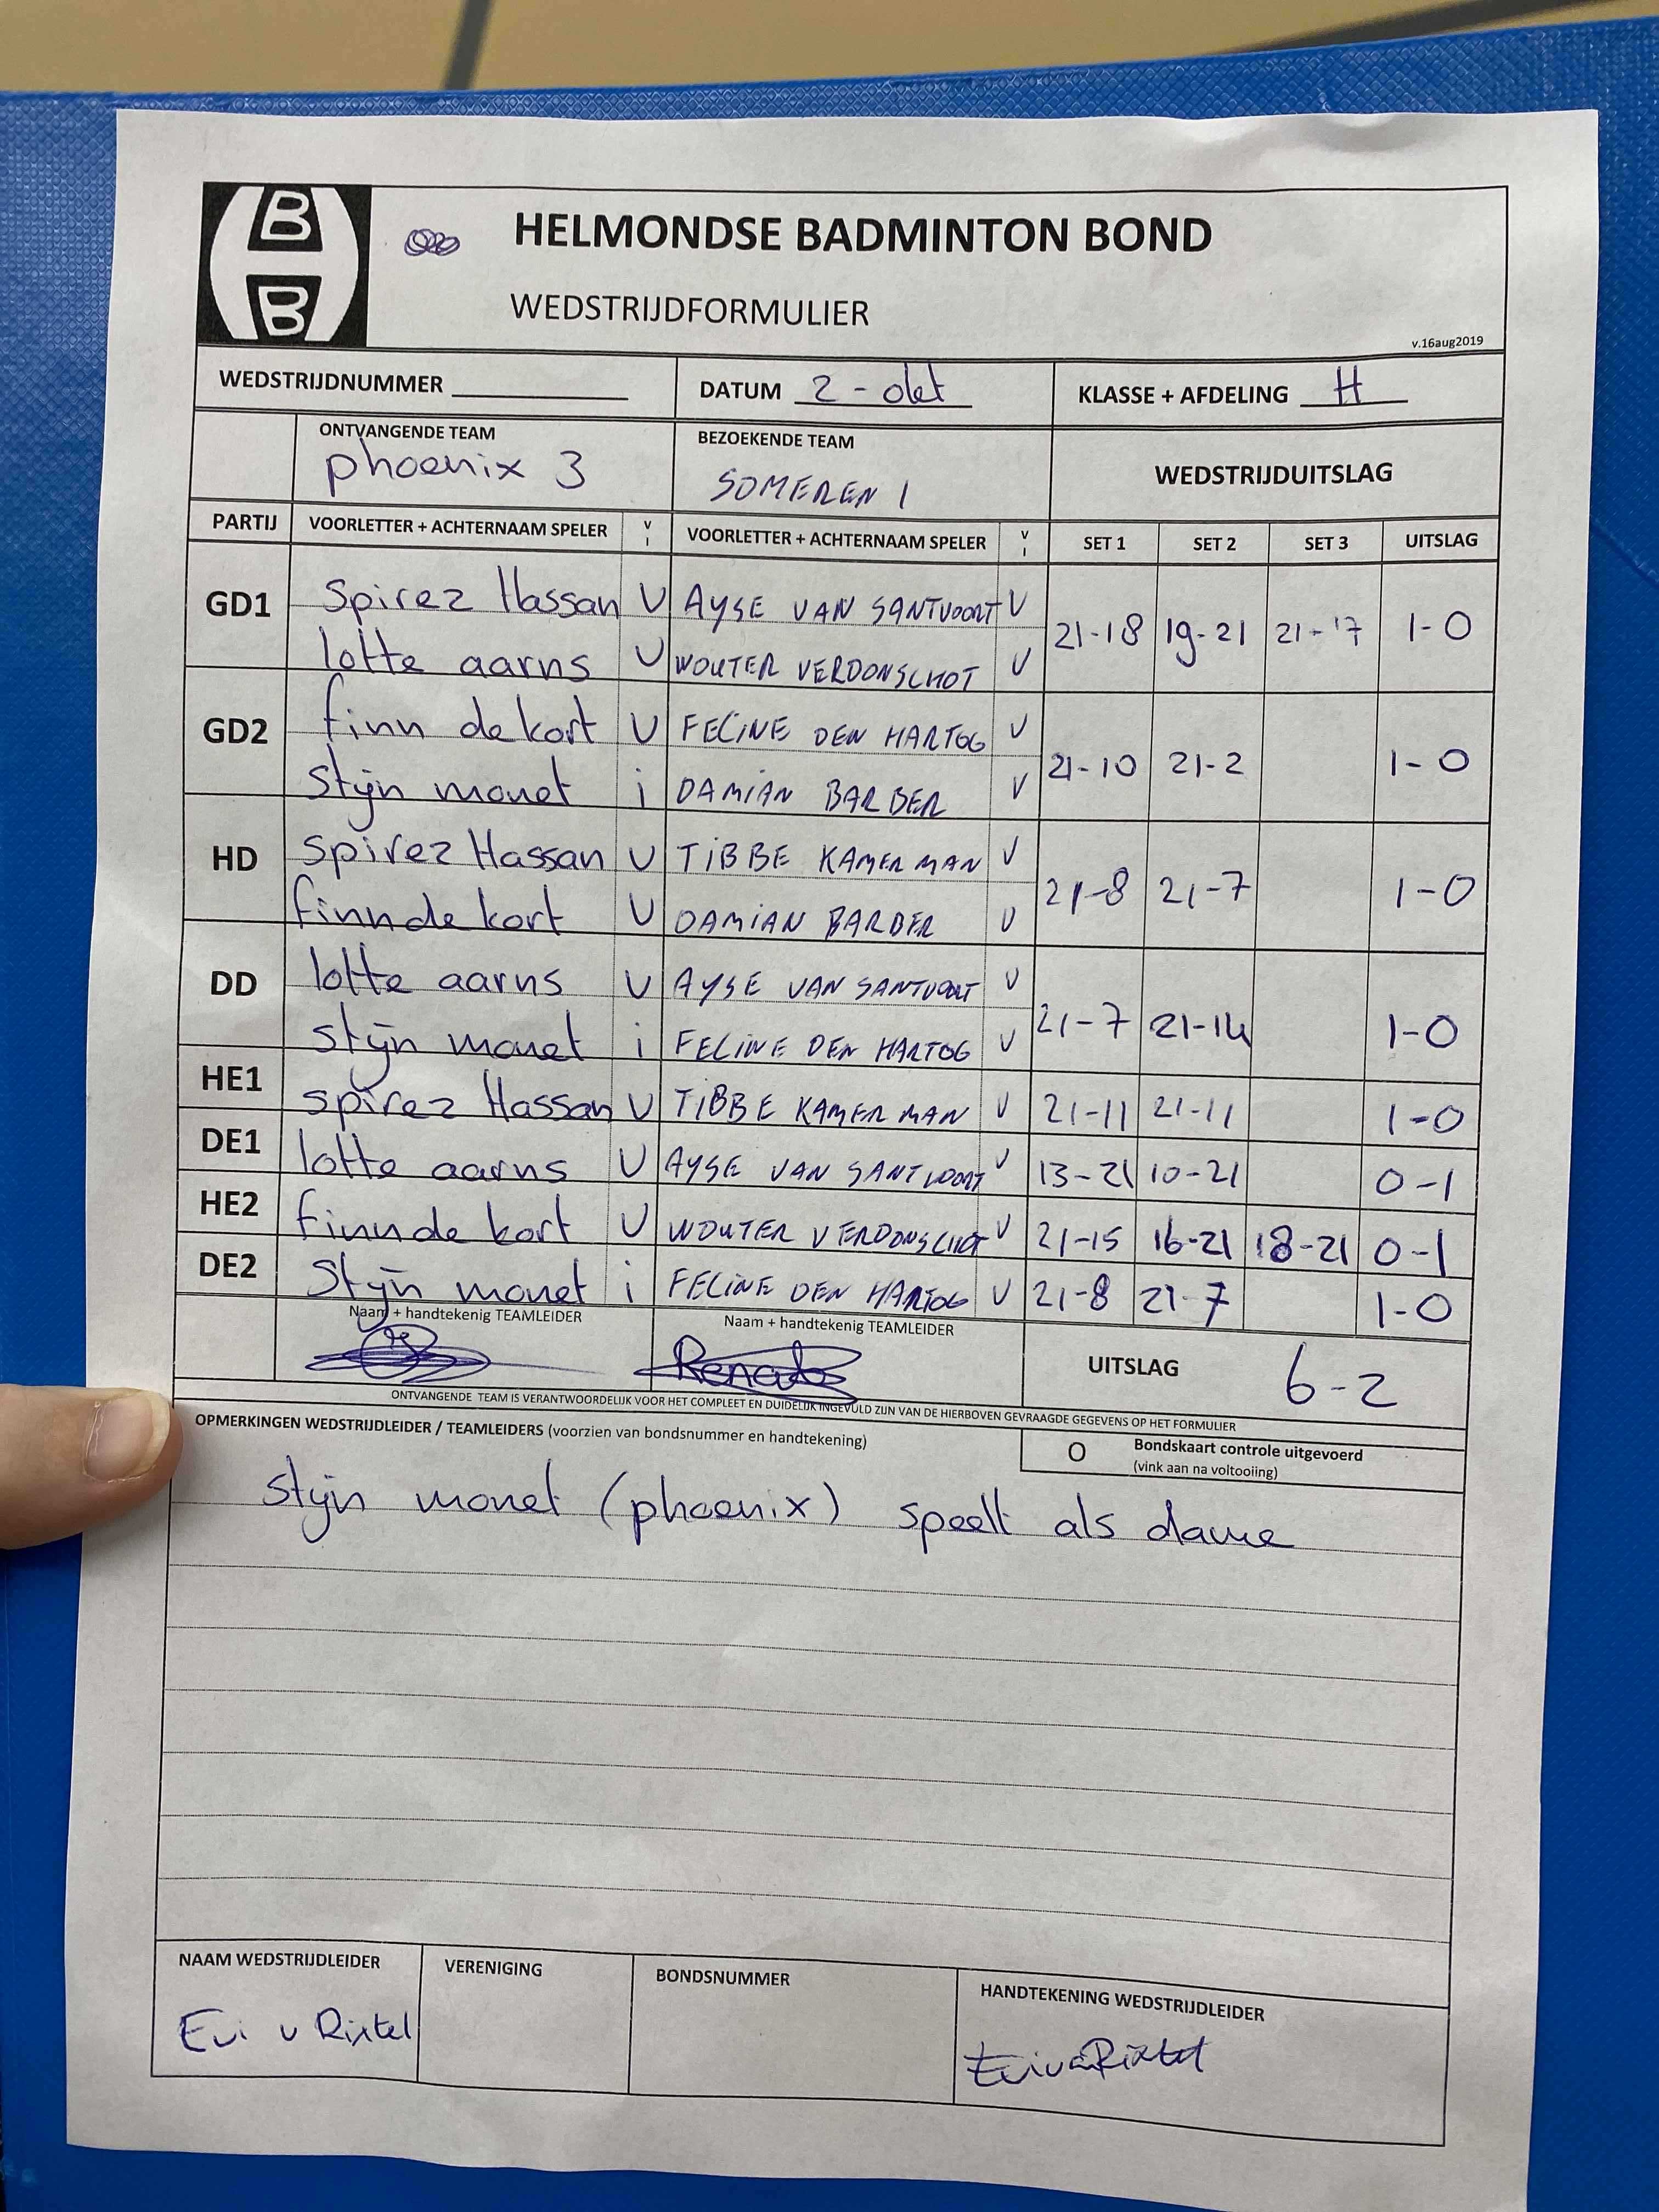 B
B
HELMONDSE BADMINTON BOND
WEDSTRIJDFORMULIER
v.16aug2019
WEDSTRIJDNUMMER DATUM 2 - okt KLASSE + AFDELING H
ONTVANGENDE TEAM BEZOEKENDE TEAM WEDSTRIJDUITSLAG
phoenix 3 SOMEREN 1
PARTIJ VOORLETTER + ACHTERNAAM SPELER V I VOORLETTER + ACHTERNAAM SPELER V I SET 1 SET 2 SET 3 UITSLAG
GD1 Spirez Hassan V AYSE VAN SANTVOORT V 21-18 19-21 21-17 1-0
lotte aarns V WOUTER VERDONSCHOT V
GD2 finn de kort V FELINE DEN HARTOG V 21-10 21-2 1-0
stijn monet i DAMIAN BARBER V
HD Spirez Hassan V TIBBE KAMERMAN V 21-8 21-7 1-0
finn de kort V DAMIAN BARBER V
DD lotte aarns V AYSE VAN SANTVOORT V 21-7 21-14 1-0
stijn monet i FELINE DEN HARTOG V
HE1 spirez Hassan V TIBBE KAMERMAN V 21-11 21-11 1-0
DE1 lotte aarns V AYSE VAN SANTVOORT V 13-21 10-21 0-1
HE2 finn de kort V WOUTER VERDONSCHOT V 21-15 16-21 18-21 0-1
DE2 Stijn monet i FELINE DEN HARTOG V 21-8 21-7 1-0
Naam + handtekenig TEAMLEIDER Naam + handtekenig TEAMLEIDER UITSLAG 6-2
ONTVANGENDE TEAM IS VERANTWOORDELIJK VOOR HET COMPLEET EN DUIDELIJK INGEVULD ZIJN VAN DE HIERBOVEN GEVRAAGDE GEGEVENS OP HET FORMULIER
OPMERKINGEN WEDSTRIJDLEIDER / TEAMLEIDERS (voorzien van bondsnummer en handtekening)
O Bondskaart controle uitgevoerd
(vink aan na voltooiing)
stijn monet (phoenix) speelt als dame
NAAM WEDSTRIJDLEIDER VERENIGING BONDSNUMMER HANDTEKENING WEDSTRIJDLEIDER
Evi v Rixtel Evi v Rixtel